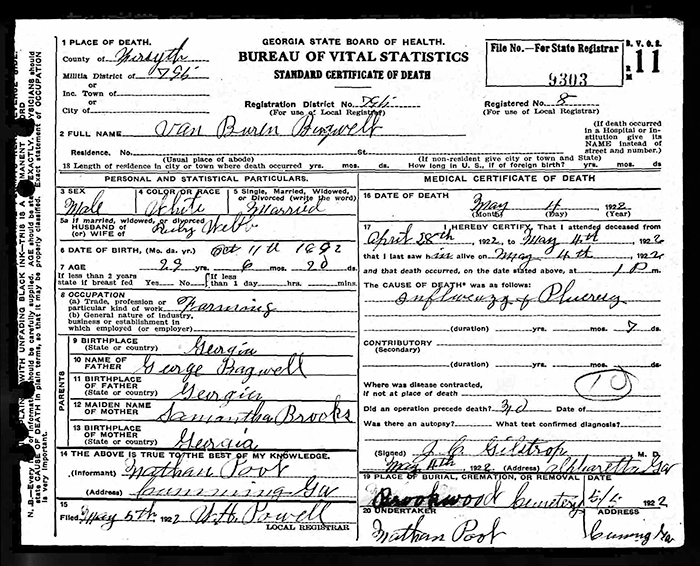 GEORGIA STATE BOARD OF HEALTH.
BUREAU OF VITAL STATISTICS
STANDARD CERTIFICATE OF DEATH
File No.—For State Registrar
9303
B. V. O. S.
11
1 PLACE OF DEATH.
County of Forsyth
Militia District of
or
Inc. Town of
or
City of
Registration District No.
(For use of Local Registrar)
Registered No. 8
(For use of Local Registrar)
2 FULL NAME Van Buren Bagwell
(If death occurred in a Hospital or Institution give its NAME instead of street and number.)
Residence. No. St.
(Usual place of abode) (If non-resident give city or town and State)
18 Length of residence in city or town where death occurred yrs. mos. ds. How long in U. S., if of foreign birth? yrs. mos. ds.
PERSONAL AND STATISTICAL PARTICULARS.
3 SEX
Male
4 COLOR OR RACE
White
5 Single, Married, Widowed, or Divorced (write the word)
Married
5a If married, widowed, or divorced
HUSBAND of
(or) WIFE of Ruby Webb
6 DATE OF BIRTH, (Mo. da. yr.) Oct 11th 1892
7 AGE 29 yrs. 6 mos. 20 ds.
If less than 2 years state if breast fed Yes No
If less than 1 day hrs. min.
8 OCCUPATION
(a) Trade, profession or particular kind of work Farming
(b) General nature of industry, business or establishment in which employed (or employer)
PARENTS
9 BIRTHPLACE
(State or country) Georgia
10 NAME OF FATHER George Bagwell
11 BIRTHPLACE OF FATHER
(State or country) Georgia
12 MAIDEN NAME OF MOTHER Samantha Brooks
13 BIRTHPLACE OF MOTHER
(State or country) Georgia
14 THE ABOVE IS TRUE TO THE BEST OF MY KNOWLEDGE.
(Informant) Nathan Pool
(Address) Cumming Ga
15
Filed May 5th 1922 W.H. Powell
LOCAL REGISTRAR
MEDICAL CERTIFICATE OF DEATH
16 DATE OF DEATH
May 4 1922
(Month) (Day) (Year)
17 I HEREBY CERTIFY, That I attended deceased from
April 28th, 1922 to May 4th 1922
that I last saw him alive on May 4th, 1922
and that death occurred, on the date stated above, at 1 P. m.
The CAUSE OF DEATH* was as follows:
Influenza & Pluresy
(duration) yrs. mos. 7 ds.
CONTRIBUTORY
(Secondary)
(duration) yrs. mos. ds.
Where was disease contracted,
If not at place of death
10
Did an operation precede death? no Date of
Was there an autopsy? What test confirmed diagnosis?
(Signed) J. C. Gilstrop M. D.
May 4th 1922 (Address) Alpharetta Ga
19 PLACE OF BURIAL, CREMATION, OR REMOVAL DATE
Brookwood Cemetery 1922
20 UNDERTAKER ADDRESS
Nathan Pool Cuming Ga